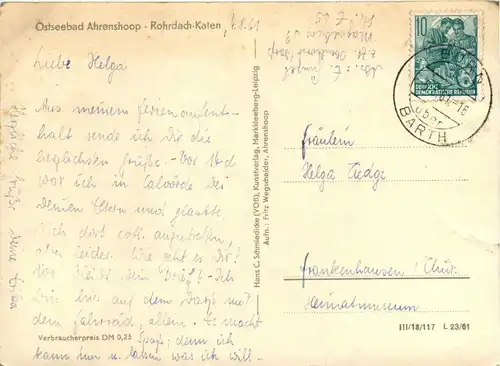 Ostseebad Ahrenshoop - Rohrdach-Katen
1.8.61
Liebe Helga
Aus meinem Ferienaufent-
halt sende ich Dir die
herzlichsten Grüße. Vor 14 d
war ich in Calvörde bei
Deinen Eltern und glaubte
Dich dort evtl. anzutreffen,
aber leider. Wie geht es Dir?
Wo bleibt Dein Brief? Ich
bin hier auf dem Darß mit
dem Fahrrad, allein. Es macht
Spaß; denn ich
kann tun u. lassen was ich will.
Verbraucherpreis DM 0,25
Herzliche Grüße Deine
Hans C. Schmiedicke (VOB), Kunstverlag, Markkleeberg-Leipzig
Aufn.: Fritz Wegscheider, Ahrenshoop
Abs.: E.
Magdeburg
10
DEUTSCHE
DEMOKRATISCHE REPUBLIK
BARTH
Fräulein
Helga Tiedge
Frankenhausen / Thür.
Heimatmuseum
III/18/117 L 23/61